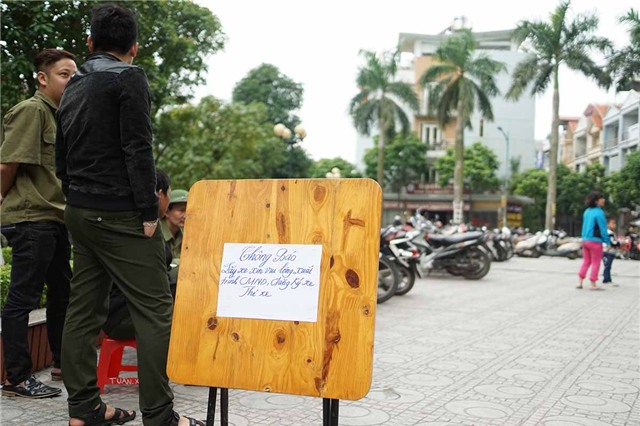 Thông Báo
Lấy xe xin vui lòng xuất
trình CMND, Đăng ký xe
Thẻ xe
TUAN.X